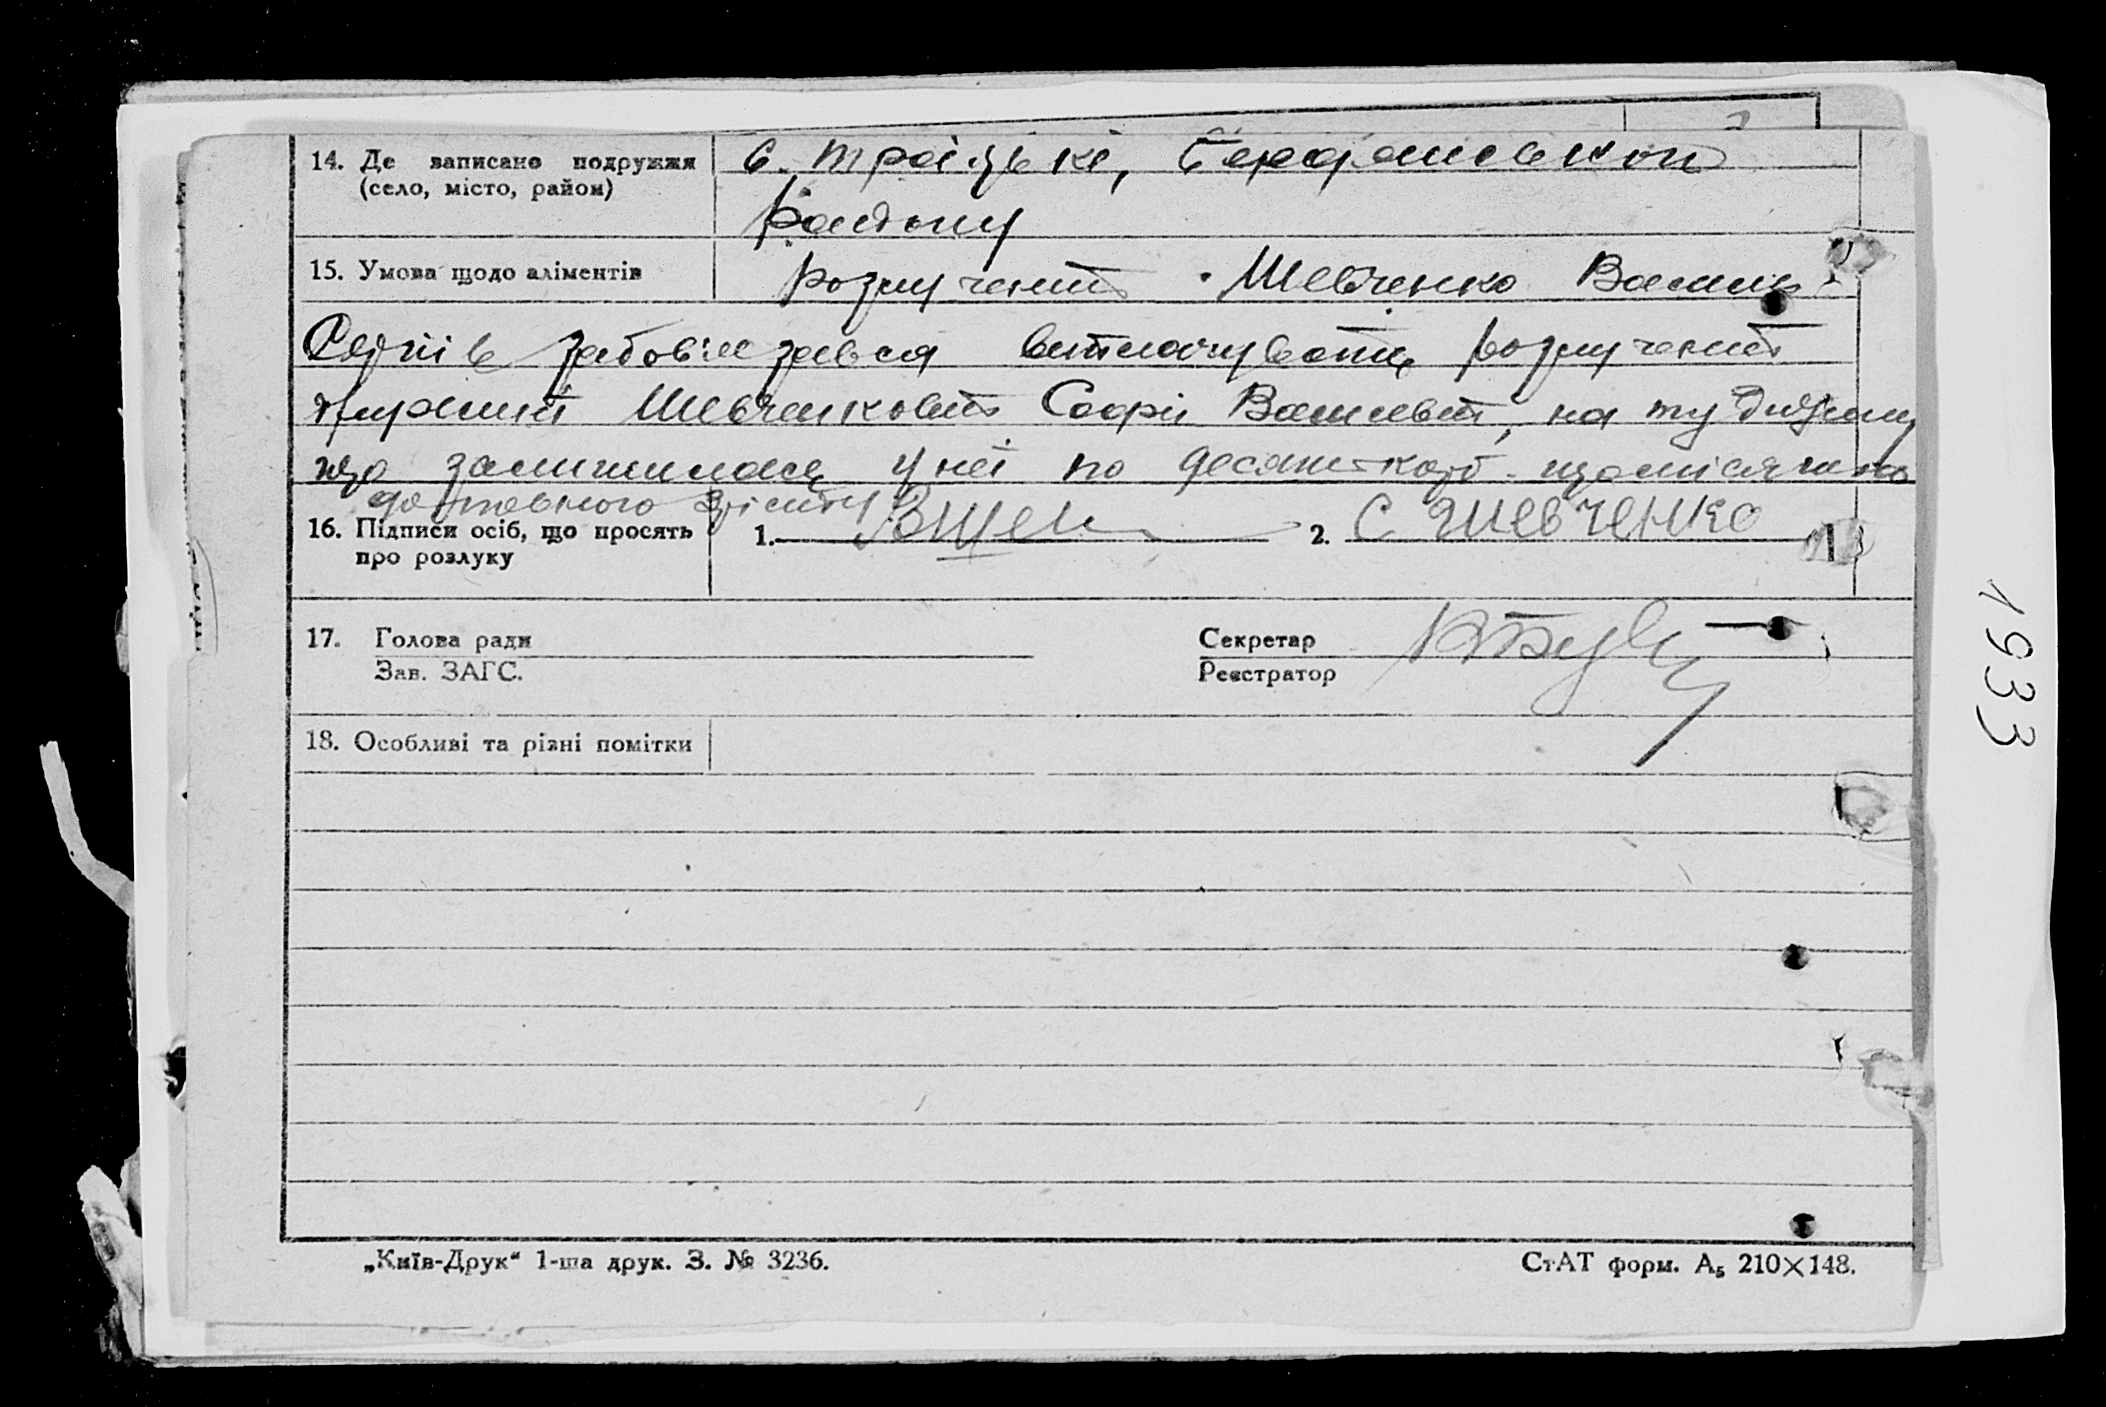 14. Де записано подружжя с. Троїцькі, Бердянськои
(село, місто, район) району
15. Умова щодо аліментів розлучений Шевченко Василь
Сергіїв забов'язався виплачувати розлучений
дружині Шевченковій Софії Василівні, на ту дитину
що залишилася у неї по десять карб. щомісячно
до повного зросту
16. Підписи осіб, що просять 1. ВШев 2. С ШЕВЧЕНКО
про розлуку
17. Голова ради Секретар
Зав. ЗАГС. Реєстратор
18. Особливі та різні помітки
„Київ-Друк“ 1-ша друк. З. № 3236. СтАТ форм. А₅ 210×148.
1933